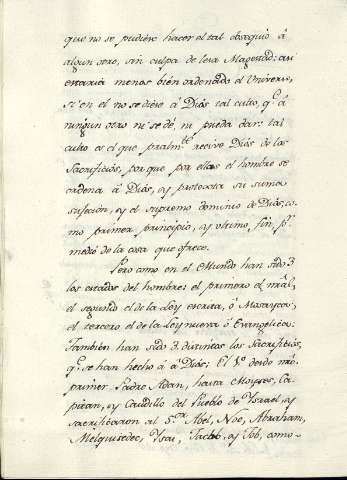 que no se pudiese hacer el tal obsequio á
algun otro, sin culpa de lesa Magestad: asi
estaria menos bien ordenado el Universo,
si en el no se diese á Dios tal culto, q.e á
ningun otro ni se dé, ni pueda dar: tal
culto es el que pralm.te recive Dios de los
Sacrificios, porque por ellos el hombre se
ordena á Dios, y protexta su suma
sujecion, y el supremo dominio de Dios, co-
mo primer principio, y ultimo fin p.r
medio de la cosa que ofrece.
Pero como en el Mundo han sido 3
los estados del hombre: el primero el nrâl,
el segundo el de la Ley escrita, ó Mosayca,
el tercero el de la Ley nueva ó Evangelica:
Tambien han sido 3 distintos los Sacrificios,
q.e se han hecho á Dios; El 1.o desde nrô
primer Padre Adan, hasta Moyses, Ca-
pitan, y Caudillo del Pueblo de Ysrael, y
sacrificaron al S.or Abel, Noe, Abraham,
Melquisedec, Ysac, Jacob, y Job, como-